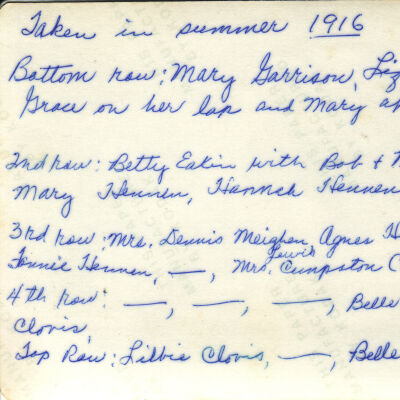 Taken in summer 1916
Bottom row: Mary Garrison, Liz
Grace on her lap and Mary
2nd row: Betty Eakin with Bob &
Mary Hennen, Hannah Hennen
3rd row: Mrs. Dennis Meighen, Agnes H
Lewis
Fannie Hennen, —, Mrs. Cumpston (
4th row: —, —, —, Belle
Clovis,
Top Row: Libbie Clovis, —, Belle